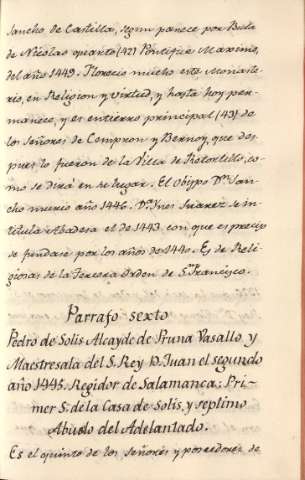 sancho de Castilla, segun parece por Bula
de Nicolao quarto (42) Pontifice Maximo,
del año 1449. Florecio mucho este Monaste-
rio, en Religion y virtud, y hasta hoy per-
maneze, y es entierro principal (43) de
los señores de Cempron y Bernoy, que des-
pues lo fueron de la Villa de Retortillo, co-
mo se dirá en su lugar. El Obispo Dn. San-
cho murio año 1446. Dª. Ines Suarez se in-
titula Abadesa el de 1443 con que es preciso
se fundase por los años de 1440. Es de Reli-
giosas de la Tercera Orden de Sn. Francisco.
Parrafo sexto
Pedro de Solis Alcayde de Pruna Vasallo, y
Maestresala del S. Rey D. Juan el segundo
año 1445. Regidor de Salamanca: Pri-
mer Sr. de la Casa de Solis, y septimo
Abuelo del Adelantado.
Es el quinto de los señores y poseedores de